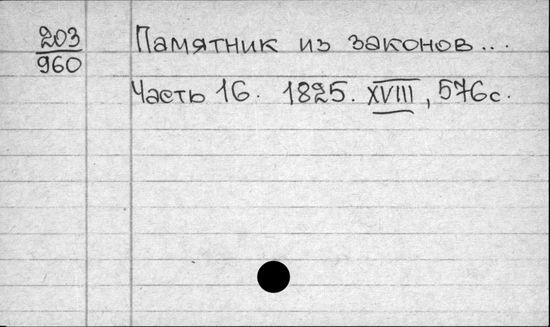 203
960
Памятник из законов...
Часть 16. 1825. XVIII, 576с.